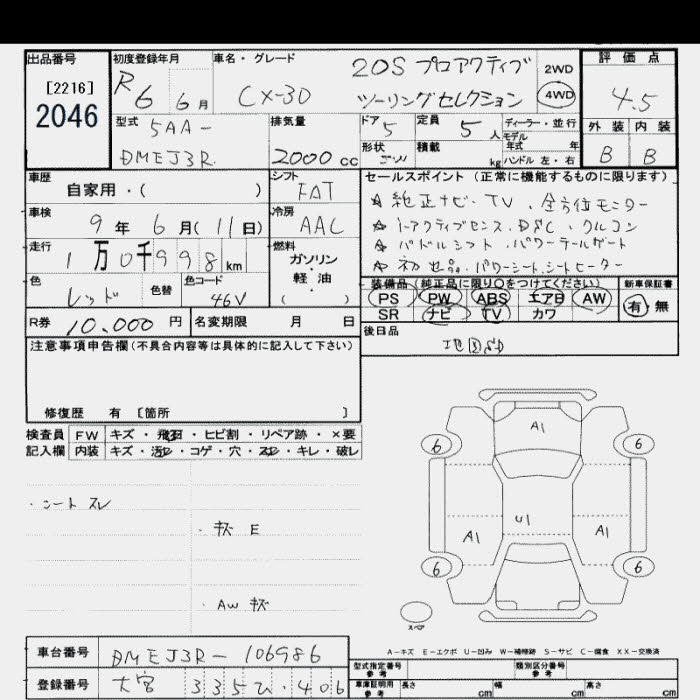 出品番号
[2216]
2046
初度登録年月
R6 6月
車名・グレード
CX-30
20S プロアクティブ
ツーリングセレクション
2WD
4WD
評価点
4.5
外装 内装
B B
型式
5AA-
DMEJ3R
排気量
2000 cc
ドア 5
形状 SW
定員 5 人
積載 kg
ディーラー・並行
モデル年式 年
ハンドル 左・右
車歴
自家用・( )
シフト
FAT
車検
9年 6月(11日)
冷房
AAC
走行
1万0千998km
燃料
ガソリン・軽油
( )
色
レッド
色替
色コード
46V
R券 10.000 円
名変期限 月 日
セールスポイント (正常に機能するものに限ります)
☆ 純正ナビ・TV . 全方位モニター
☆ i-アクティブセンス . DSC . クルコン
☆ パドルシフト . パワーテールゲート
☆ パワーシート . シートヒーター
装備品 (純正品に限り〇をつけてください)
PS PW ABS エアB AW
SR ナビ TV カワ
新車保証書
有・無
後日品
注意事項申告欄 (不具合内容等は具体的に記入して下さい)
修復歴 有 [箇所 ]
検査員記入欄
FW キズ・飛石・ヒビ割・リペア跡・×要
内装 キズ・汚レ・コゲ・穴・スレ・キレ・破レ
・シート スレ
・キズ E
・AW キズ
A1
6 6
U1
A1 A1
6 6
スペア
A-キズ E-エクボ U-凹み W-補修跡 S-サビ C-腐食 XX-交換済
車台番号 DMEJ3R-106986
登録番号 大宮 335ひ・406
型式指定番号 参考
類別区分番号 参考
車庫証明用 参考
長さ cm 幅 cm 高さ cm